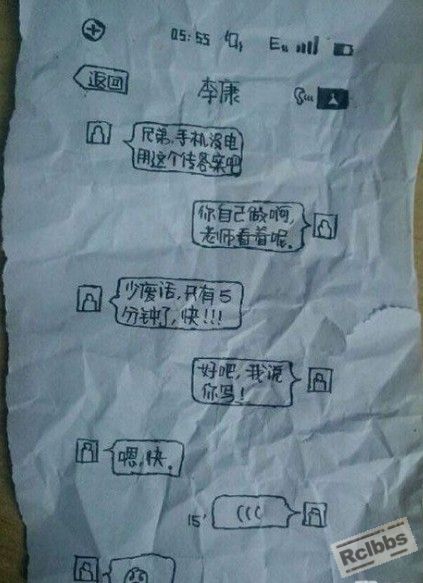 05:55 E
返回 李康
兄弟,手机没电
用这个传答案吧
你自己做啊,
老师看着呢。
少废话,只有5
分钟了,快!!!
好吧,我说
你写!
嗯,快。
15' (((
Rclbbs